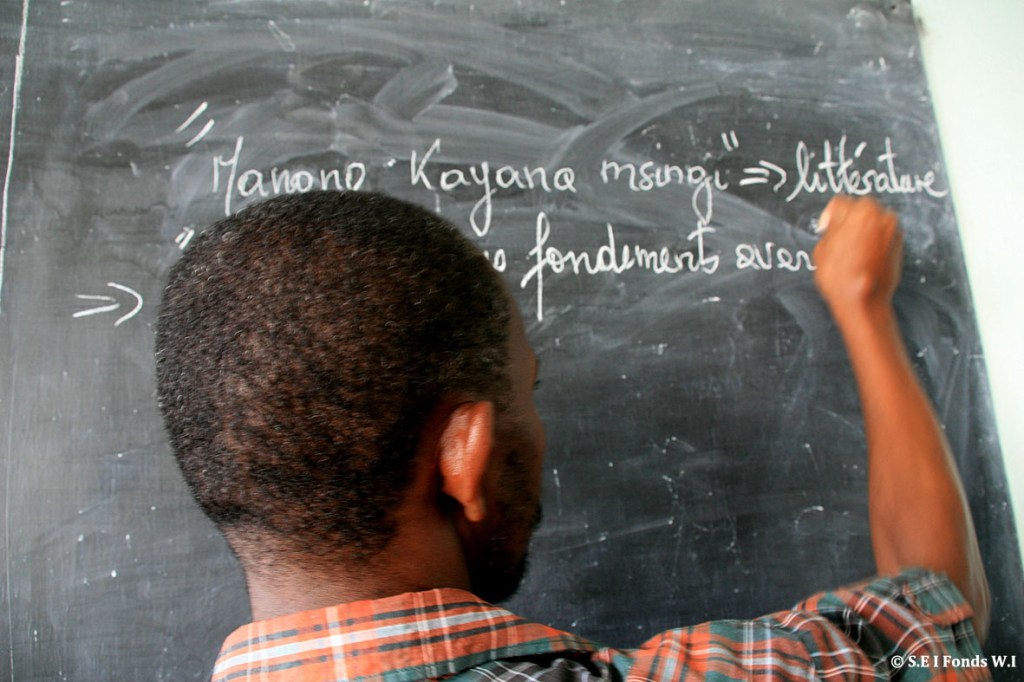 "Manono Kayana msingi" => littérature
" fondements aver
=>
© S.E I Fonds W.I